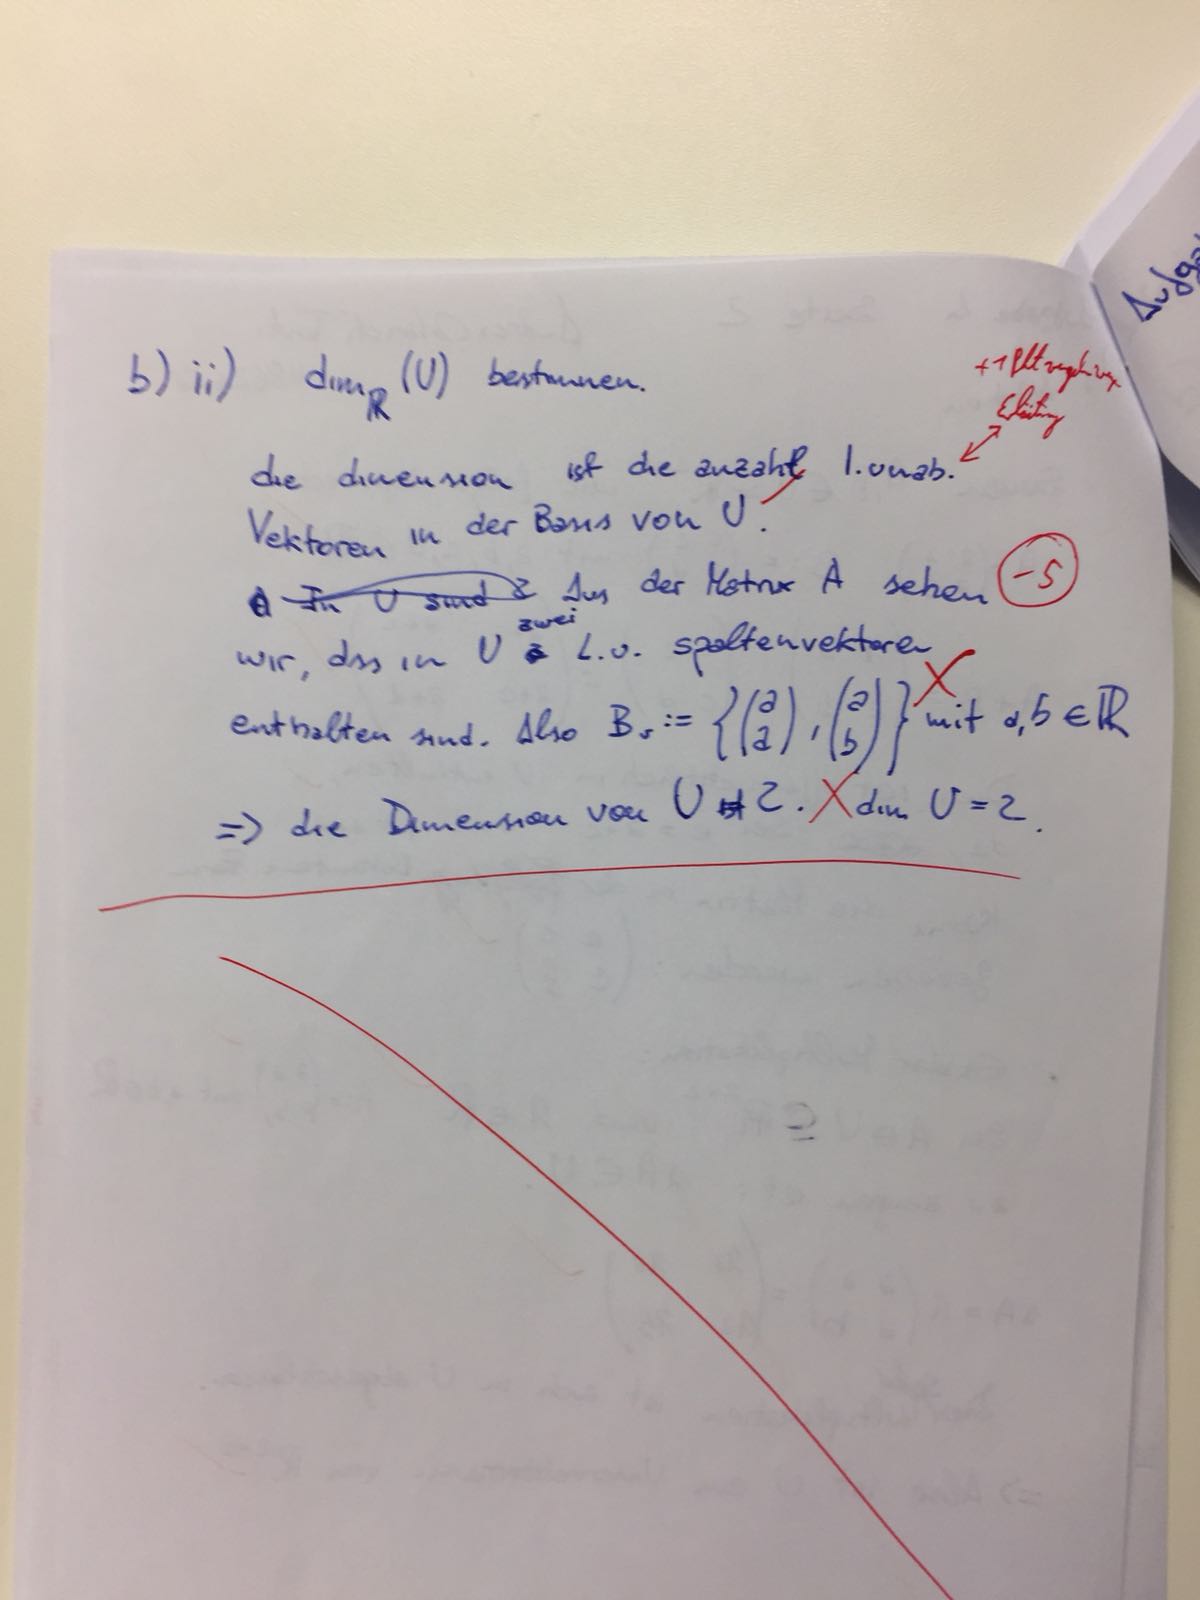 b) ii) dim_ℝ (U) bestimmen.
+1 Pkt
die dimension ist die anzahl l.unab.
Vektoren in der Basis von U.
In U sind 2 Aus der Matrix A sehen
-5
wir, dss in U zwei L.u. spaltenvektoren
enthalten sind. Also B := {(a a), (a b)} mit a,b ∈ ℝ
=> die Dimension von U ist 2. dim U = 2.